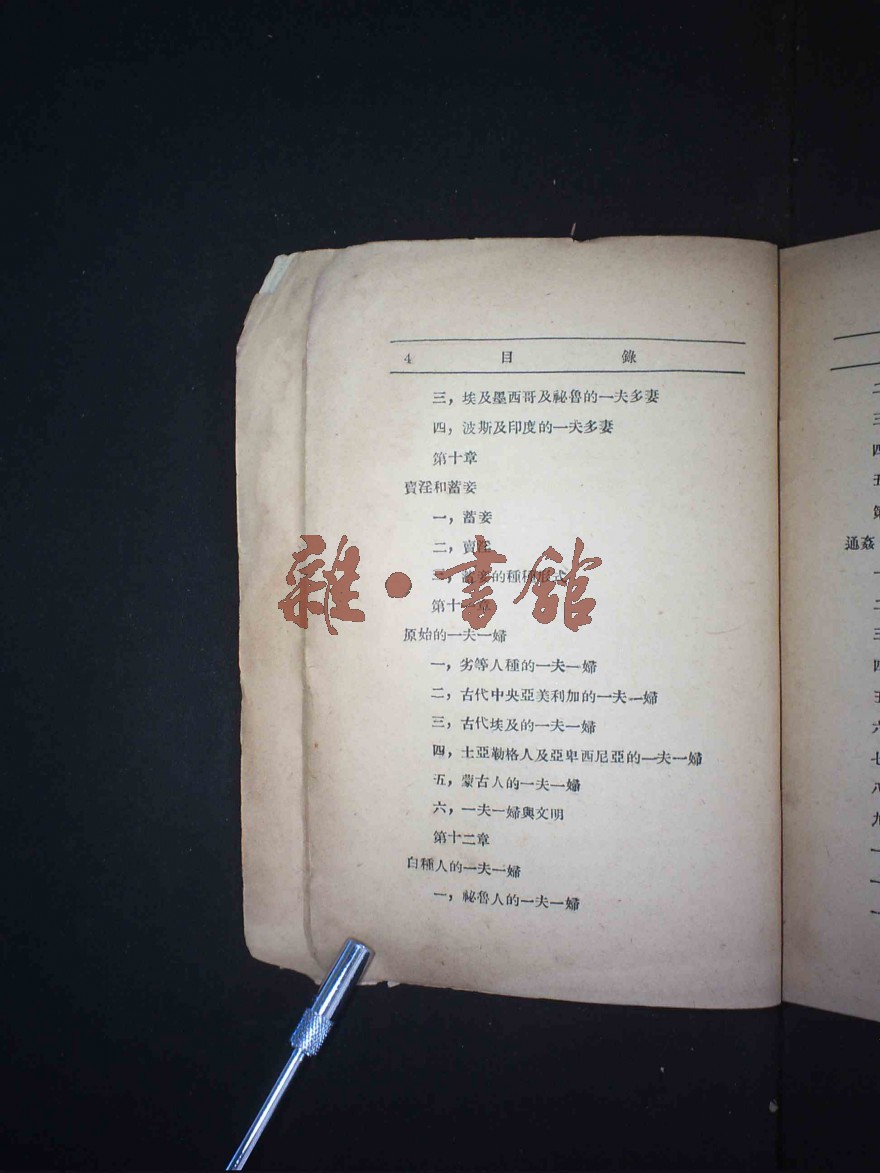 4 目 錄
三，埃及墨西哥及祕魯的一夫多妻
四，波斯及印度的一夫多妻
第十章
賣淫和蓄妾
一，蓄妾
二，賣淫
三，蓄妾的種種形式
第十一章
原始的一夫一婦
一，劣等人種的一夫一婦
二，古代中央亞美利加的一夫一婦
三，古代埃及的一夫一婦
四，土亞勒格人及亞卑西尼亞的一夫一婦
五，蒙古人的一夫一婦
六，一夫一婦與文明
第十二章
白種人的一夫一婦
一，祕魯人的一夫一婦
雜·書館
二
三
四
五
第
通姦
一
二
三
四
五
六
七
八
九
一
一
一